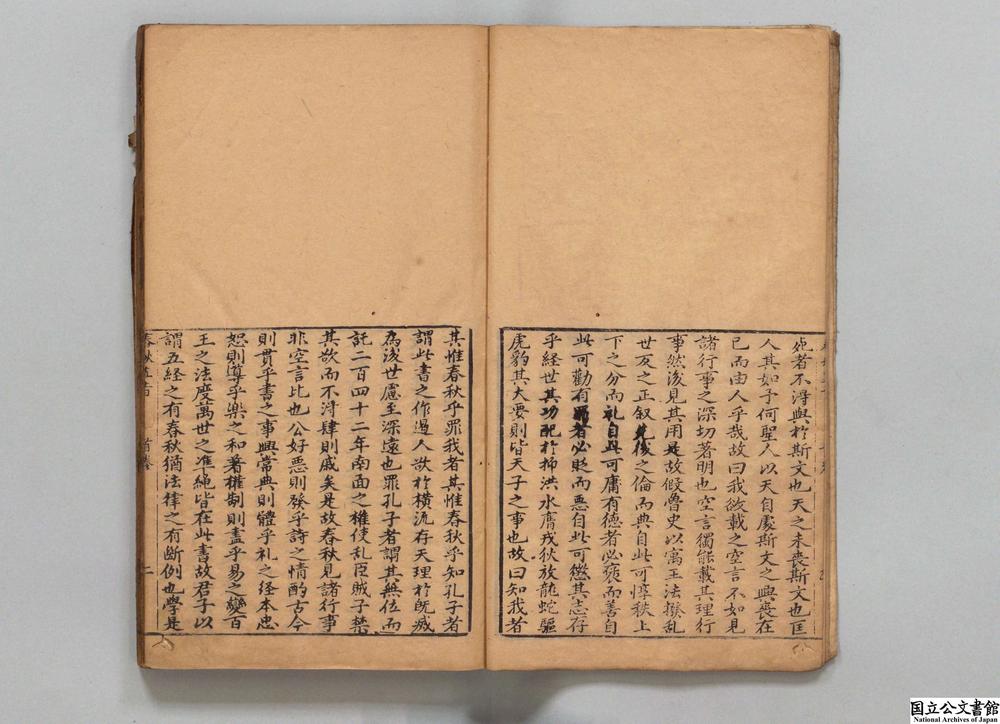 死者不得與於斯文也天之未喪斯文也匡
人其如予何聖人以天自處斯文之興喪在
已而由人乎哉故曰我欲載之空言不如見
諸行事之深切著明也空言獨能載其理行
事然後見其用是故假魯史以寓王法撥乱
世反之正叙先後之倫而典自此可惇秩上
下之分而礼自此可庸有德者必褒而善自
此可勸有罪者必貶而惡自此可懲其志存
乎經世其功配於抑洪水膺戎狄放龍蛇驅
虎豹其大要則皆天子之事也故曰知我者
其惟春秋乎罪我者其惟春秋乎知孔子者
謂此書之作遏人欲於横流存天理於既滅
為後世慮至深遠也罪孔子者謂其無位而
託二百四十二年南面之權使乱臣賊子禁
其欲而不得肆則戚矣是故春秋見諸行事
非空言比也公好惡則發乎詩之情酌古今
則貫乎書之事興常典則體乎礼之經本忠
恕則導乎樂之和著權制則盡乎易之變百
王之法度萬世之准繩皆在此書故君子以
謂五経之有春秋猶法律之有断例也學是
春秋 首卷 二
国立公文書館
National Archives of Japan